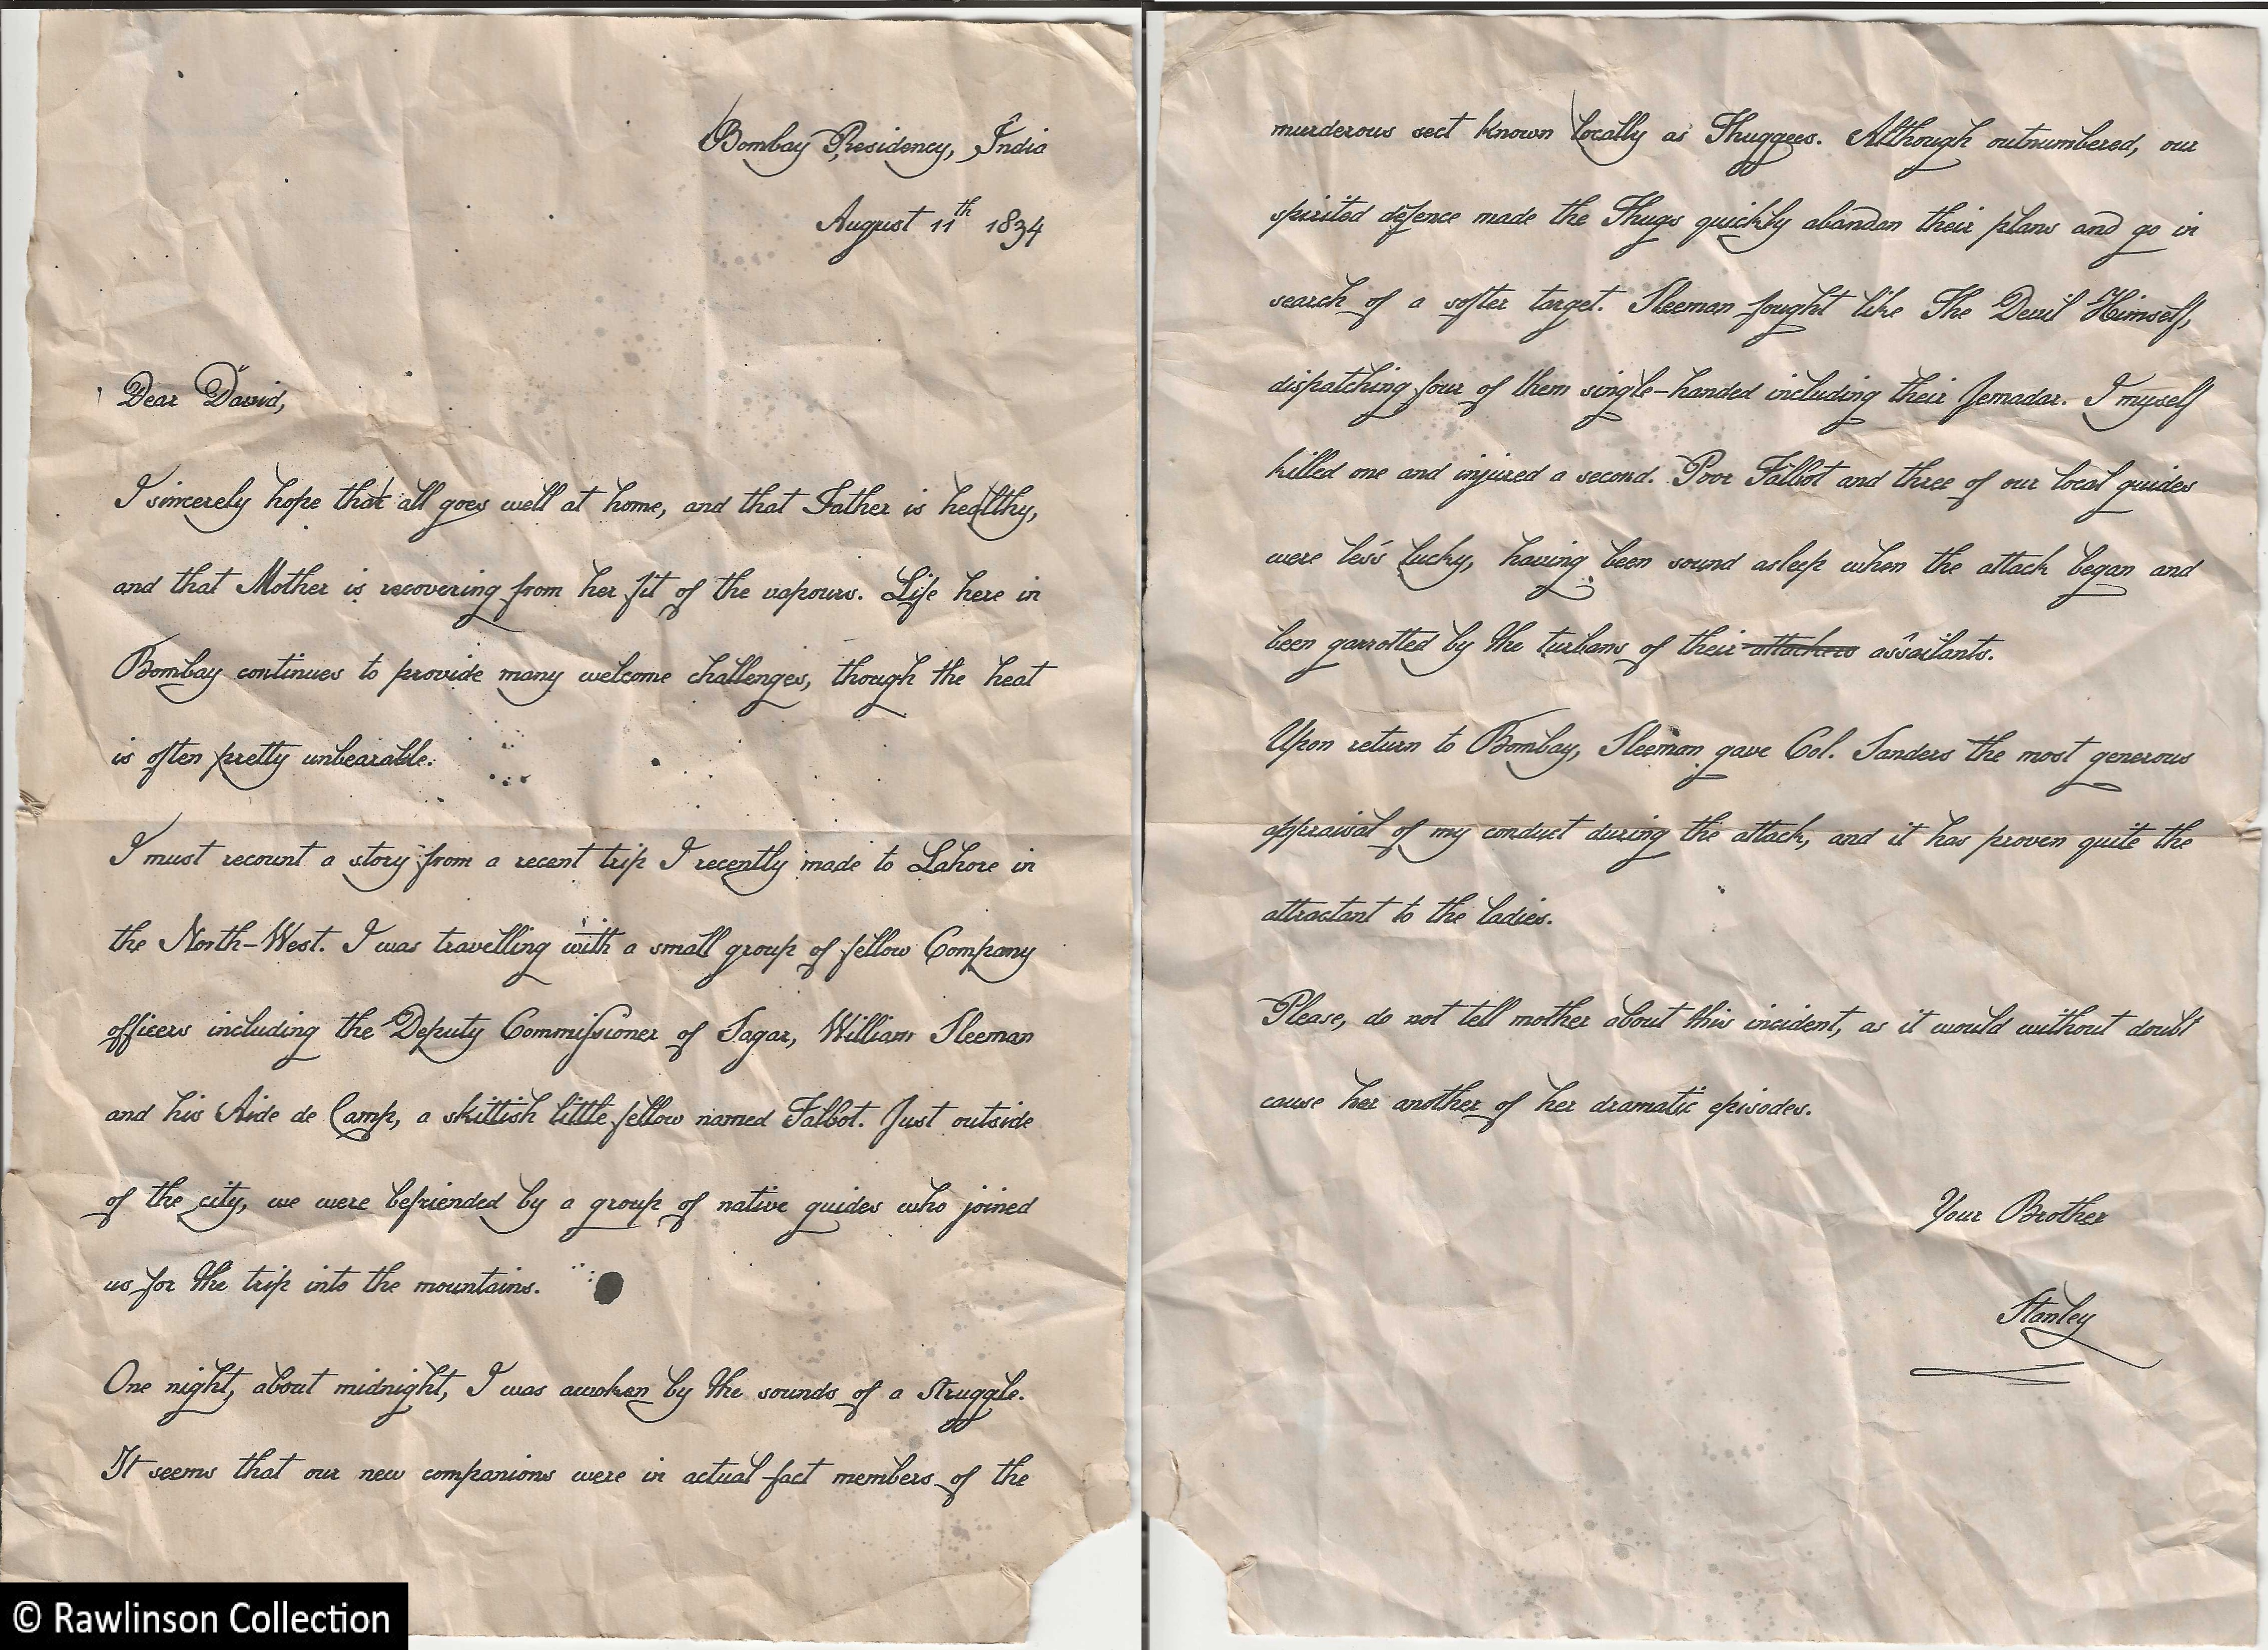 Bombay Presidency, India
August 11th 1834
Dear David,
I sincerely hope that all goes well at home, and that Father is healthy,
and that Mother is recovering from her fit of the vapours. Life here in
Bombay continues to provide many welcome challenges, though the heat
is often pretty unbearable.
I must recount a story from a recent trip I recently made to Lahore in
the North-West. I was travelling with a small group of fellow Company
officers including the Deputy Commissioner of Sagar, William Sleeman
and his Aide de Camp, a skittish little fellow named Talbot. Just outside
of the city, we were befriended by a group of native guides who joined
us for the trip into the mountains.
One night, about midnight, I was awoken by the sounds of a struggle.
It seems that our new companions were in actual fact members of the
murderous sect known locally as Thuggees. Although outnumbered, our
spirited defence made the Thugs quickly abandon their plans and go in
search of a softer target. Sleeman fought like The Devil Himself,
dispatching four of them single-handed including their Jemadar. I myself
killed one and injured a second. Poor Talbot and three of our local guides
were less lucky, having been sound asleep when the attack began and
been garrotted by the turbans of their attackers assailants.
Upon return to Bombay, Sleeman gave Col. Sanders the most generous
appraisal of my conduct during the attack, and it has proven quite the
attractant to the ladies.
Please, do not tell mother about this incident, as it would without doubt
cause her another of her dramatic episodes.
Your Brother
Stanley
© Rawlinson Collection